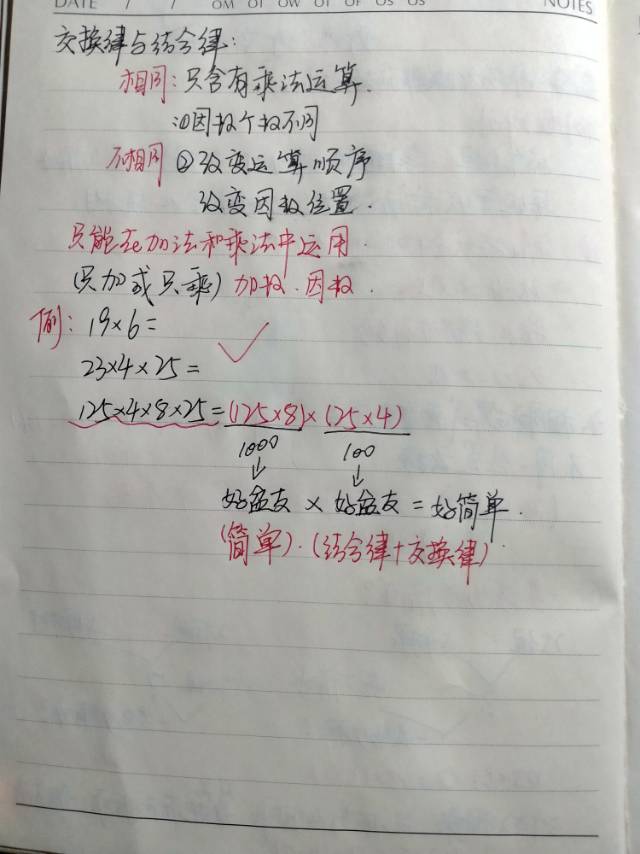 DATE / / MO TU WE TH FR SA SU NOTES
交换律与结合律:
相同: 只含有乘法运算.
①因数个数不同
不相同 ②改变运算顺序
改变因数位置.
只能在加法和乘法中运用.
(只加或只乘) 加数.因数.
例: 19×6=
23×4×25=
125×4×8×25=(125×8)×(25×4)
1000 100
好盆友 × 好盆友 = 好简单.
(简单).(结合律+交换律).